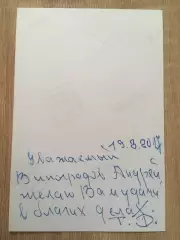 19.8.201
Уважаемый с
Виноградов Андрей
желаю Вам удачи
в благих делах